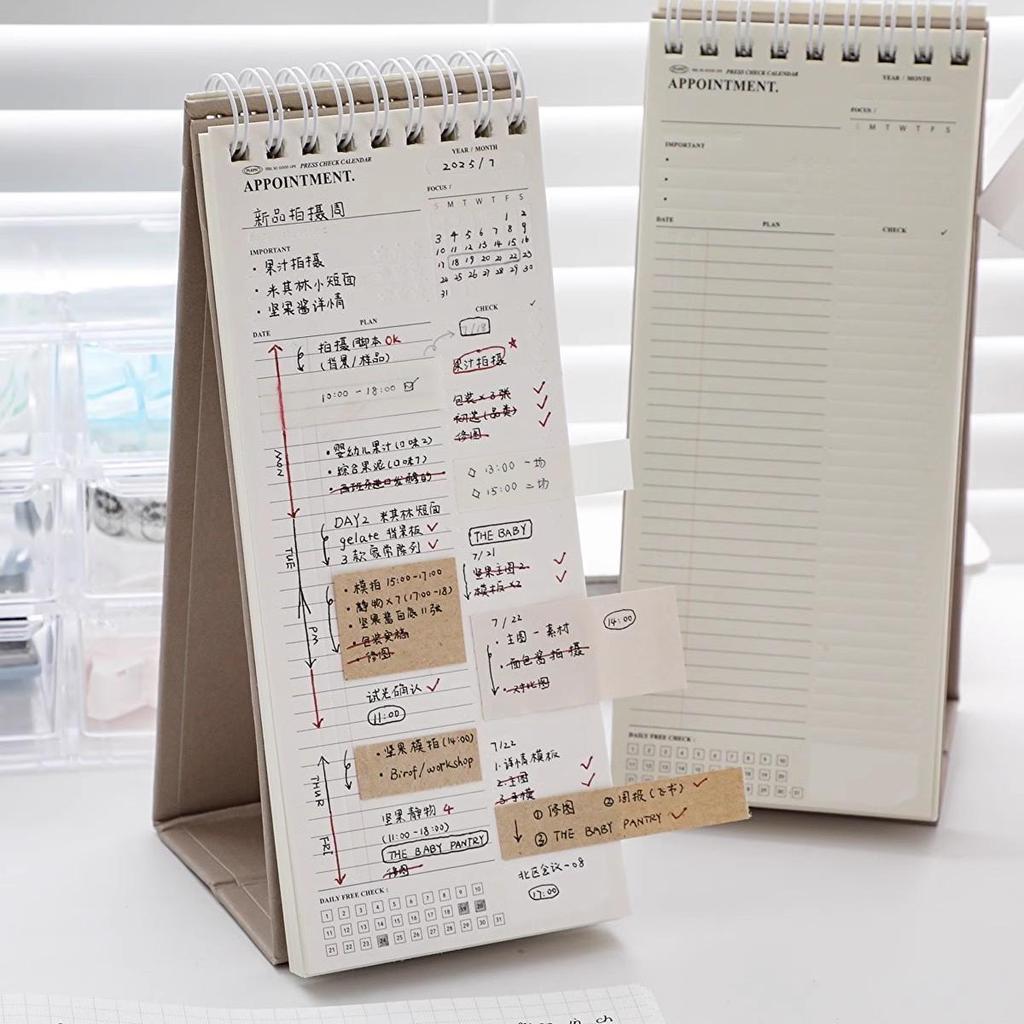 PRESS CHECK CALENDAR
APPOINTMENT.
YEAR / MONTH
2025/7
新品拍摄周
FOCUS /
S M T W T F S
1 2
3 4 5 6 7 8 9
10 11 12 13 14 15 16
17 18 19 20 21 22 23
24 25 26 27 28 29 30
31
IMPORTANT
• 果汁拍摄
• 米其林小短面
• 坚果酱详情
DATE
PLAN
CHECK
MON
TUE
PM
THUR
FRI
拍摄脚本OK
(背景/样品)
10:00 - 18:00
• 婴幼儿果汁(口味2)
• 综合果泥(口味7)
DAY2 米其林短面
gelate 背景板
3款家常陈列
• 模拍 15:00-17:00
• 静物×7(17:00-18)
• 坚果酱白底11张
• 包装实稿
• 修图
试光确认
11:00
• 坚果模拍(14:00)
• Birof/workshop
坚果静物 4
(11:00-18:00)
THE BABY PANTRY
修图
7/18
果汁拍摄
包装×3张
初选(品类)
修图
◇ 13:00 一场
◇ 15:00 二场
THE BABY
7/21
坚果主图2
模板×2
7/22
• 主图一素材
• 面包酱拍摄
• 对比图
14:00
7/22
1.详情模板
2.主图
3.手模
① 修图
② 周报(飞书)
③ THE BABY PANTRY
北区会议-08
17:00
DAILY FREE CHECK :
1 2 3 4 5 6 7 8 9 10
11 12 13 14 15 16 17 18 19 20
21 22 23 24 25 26 27 28 29 30 31
PRESS CHECK CALENDAR
APPOINTMENT.
YEAR / MONTH
FOCUS /
S M T W T F S
IMPORTANT
DATE
PLAN
CHECK
DAILY FREE CHECK :